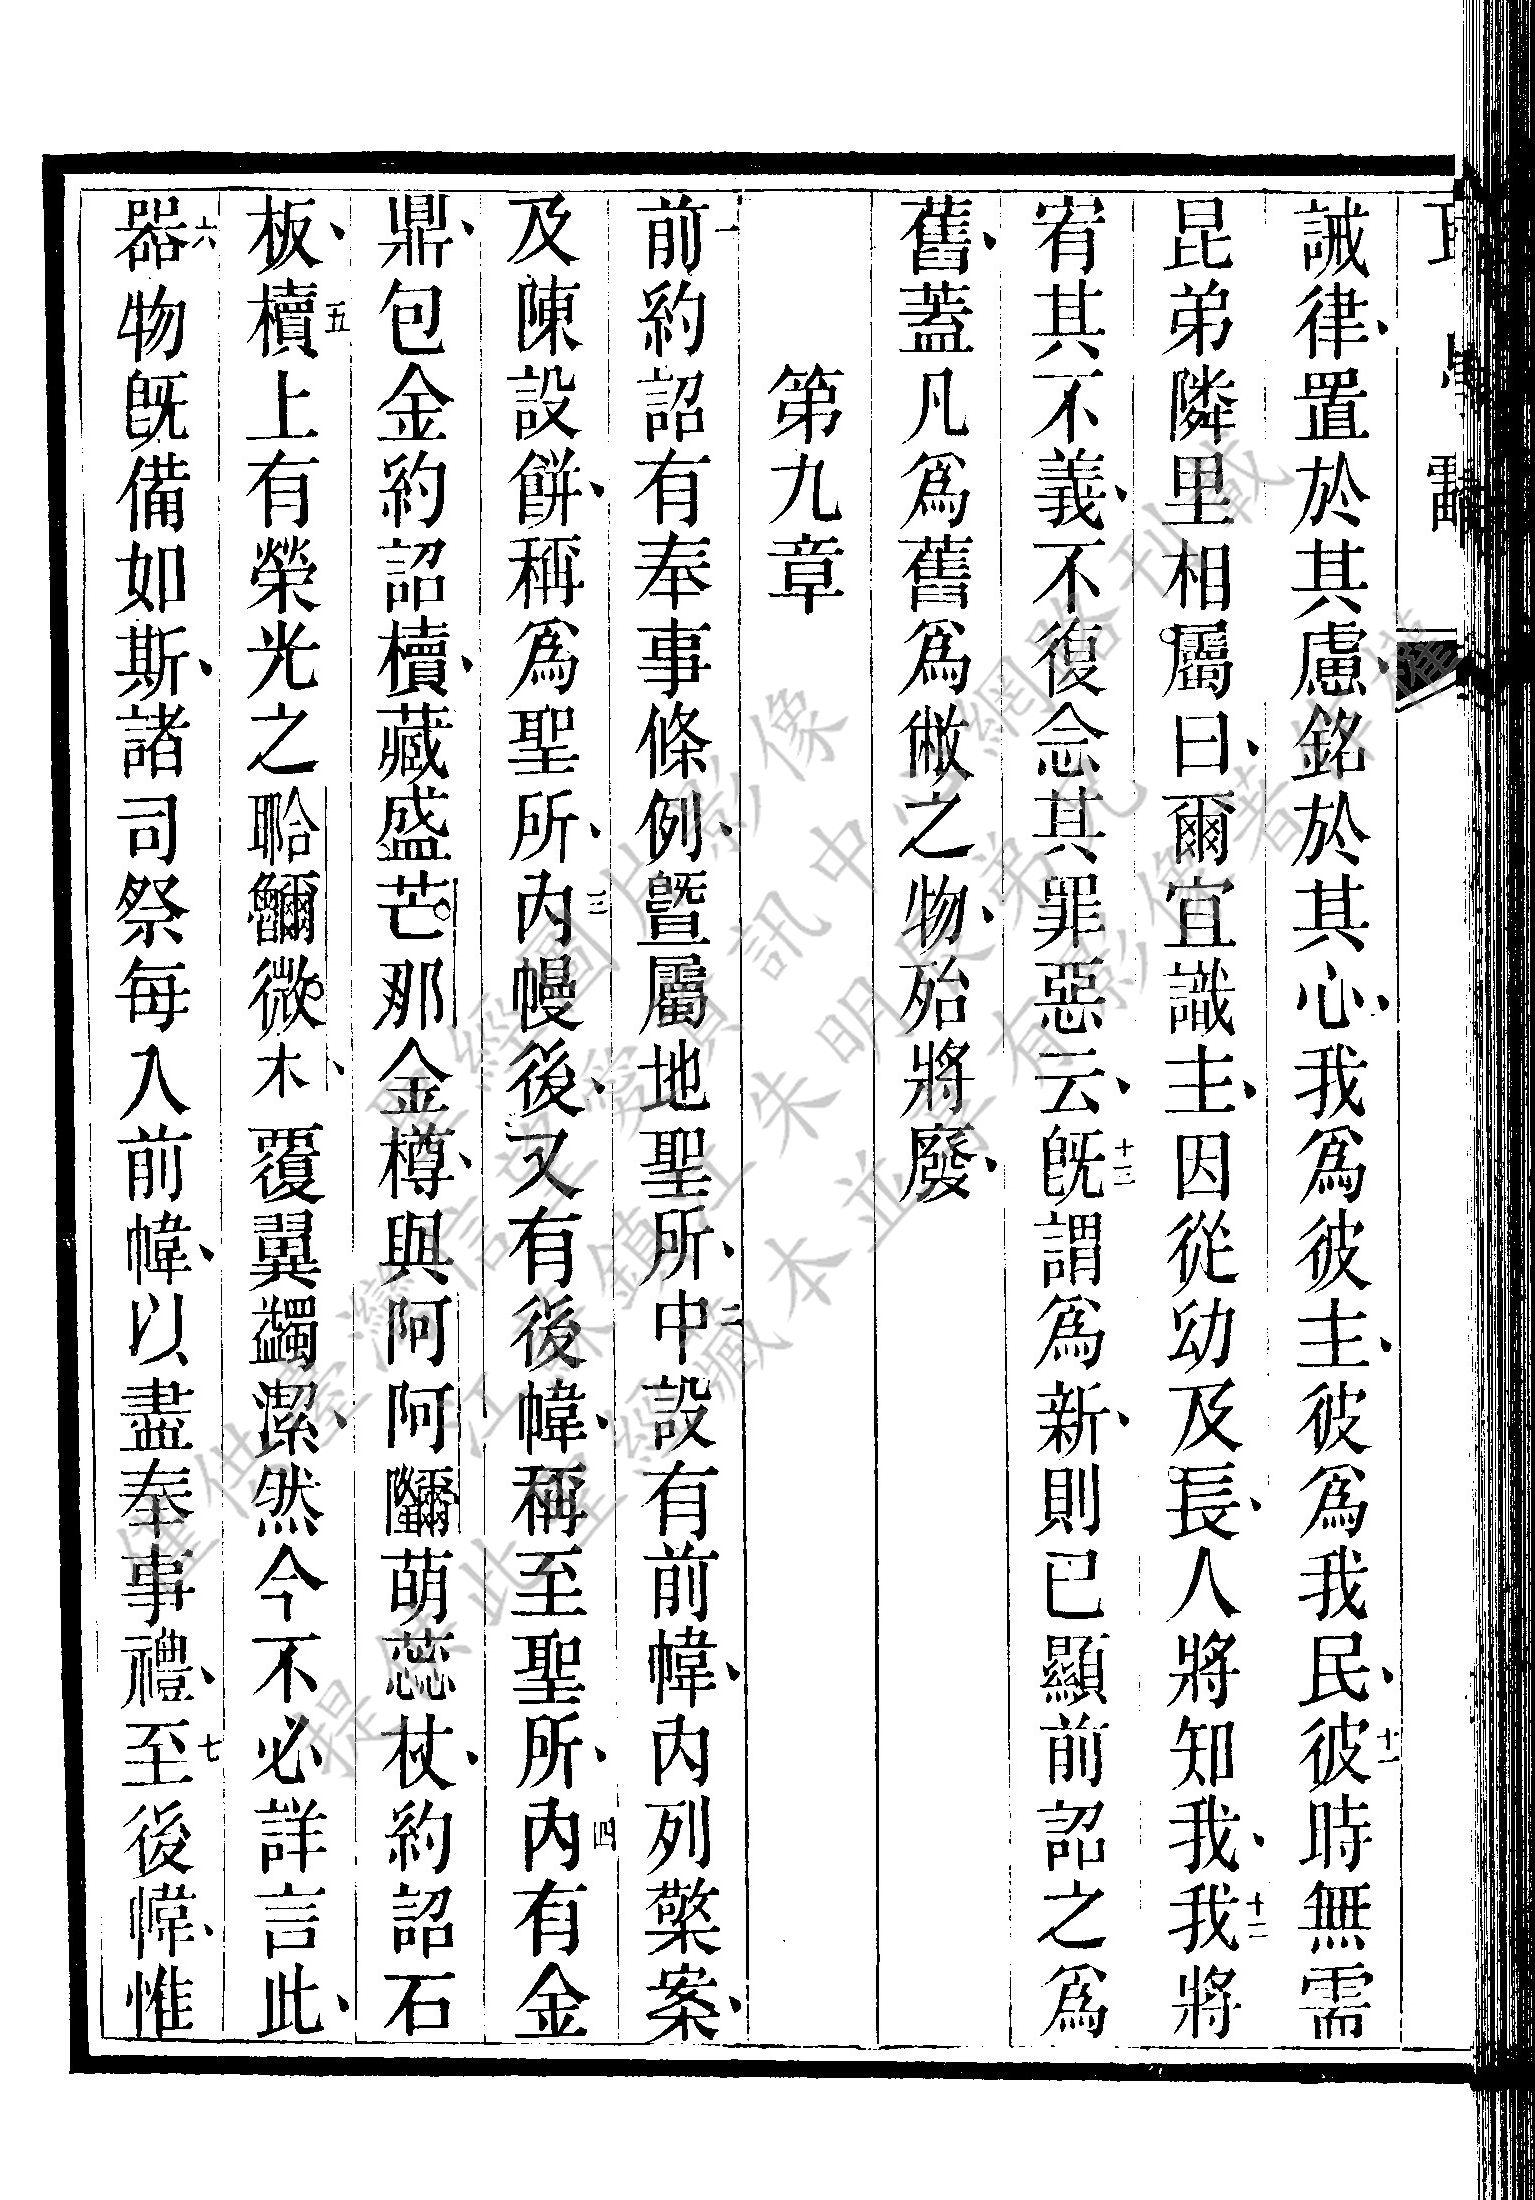 誡律、置於其慮、銘於其心、我爲彼主、彼爲我民、十一彼時無需
昆弟隣里相屬曰、爾宜識主、因從幼及長、人將知我、十二我將
宥其不義、不復念其罪惡云、十三旣謂爲新、則已顯前詔之爲
舊、蓋凡爲舊爲敝之物、殆將廢、
第九章
一前約詔有奉事條例、曁屬地聖所、二中設有前幃、內列檠案、
及陳設餅、稱爲聖所、三內幔後、又有後幃、稱至聖所、四內有金
鼎、包金約詔櫝、藏盛芒那金樽、與阿阿萌蕊杖、約詔石
板、五櫝上有榮光之微木、覆翼蠲潔、然今不必詳言此、
六器物旣備如斯、諸司祭每入前幃、以盡奉事禮、七至後幃、惟